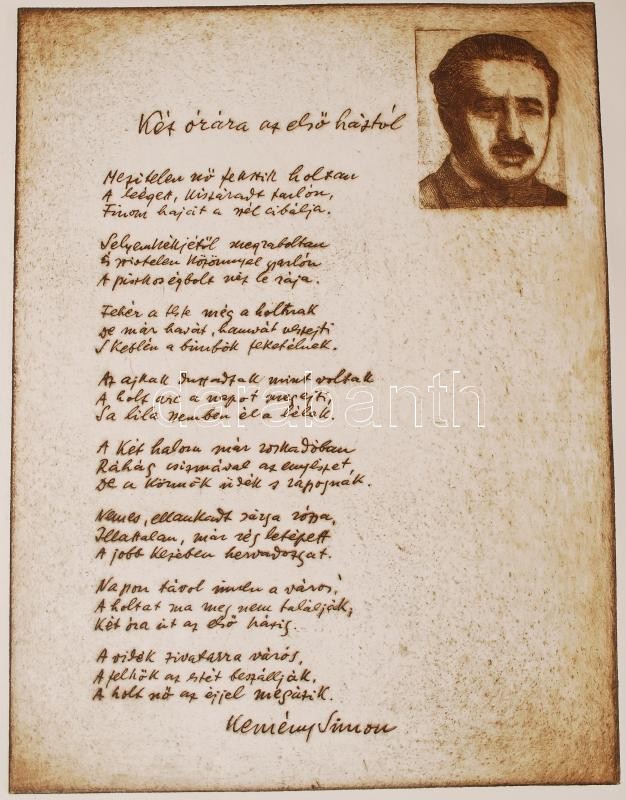 Két órára az első háztól
Mezitelen nő fekszik holtan
A leégett, kiszáradt tarlón,
Finom haját a szél cibálja.
Selyemkékjétől megraboltan
És színtelen közönnyel
A néz le rája.
Fehér a teste még a holtnak
De már havát, hamvát veszejti
S keblén a bimbók feketélnek.
Az ajkak mint voltak
A holt arc a napot
Sa lila szemben él a lélek.
A két halom már roskadóban
Ráhág csizmával az enyészet,
De a körmök üdék s ragyognák.
Nemes, ellankadt sárga rózsa,
Illattalan, már rég letépett
A jobb kezében hervadozgat.
Napon távol a város,
A holtat ma meg nem találják,
Két óra út az első házig.
A vidék zivatarra város,
A felhők az estét beszállják.
A holt nő az éjjel megázik.
Kemény Simon
darabanth